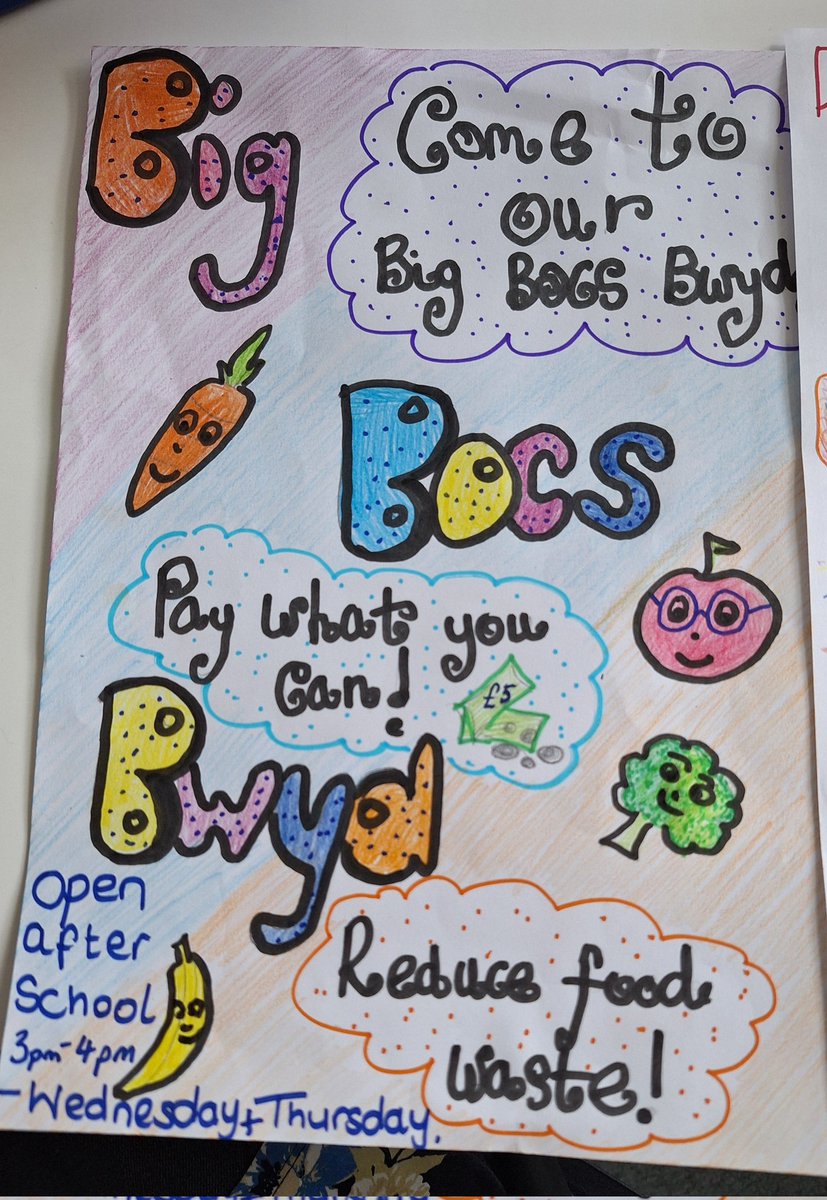 Big
Come to
our
Big BOCS Bwyd
Bocs
Pay what you
can!
£5
Bwyd
Open
after
School
3pm-4pm
-Wednesday+Thursday.
Reduce food
waste!